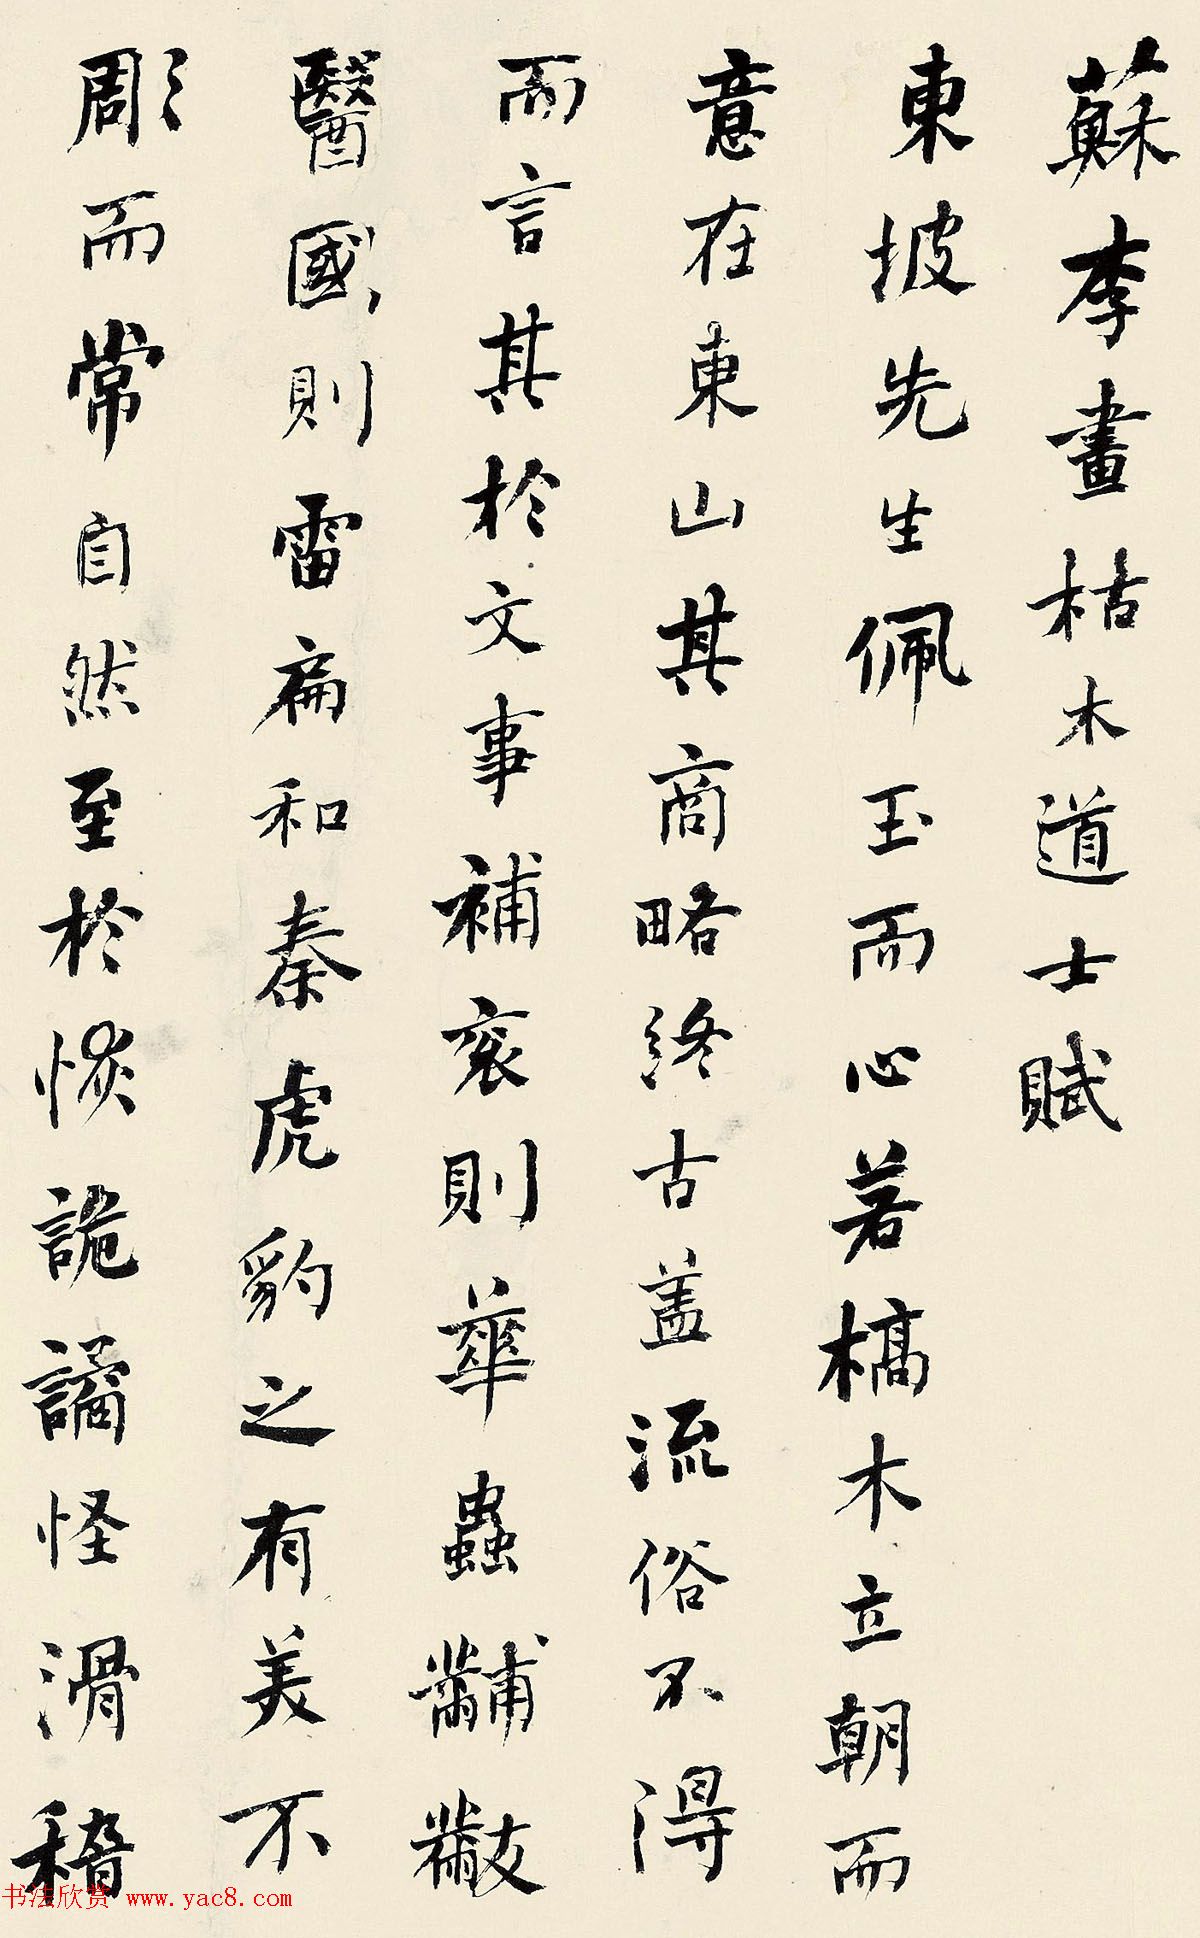 蘇李畫枯木道士賦
東坡先生佩玉而心若槁木立朝而
意在東山其商略終古盖流俗不得
而言其於文事補衮則華蟲黼黻
醫國則雷扁和秦虎豹之有美不
彫而常自然至於恢詭譎怪滑稽
书法欣赏 www.yac8.com